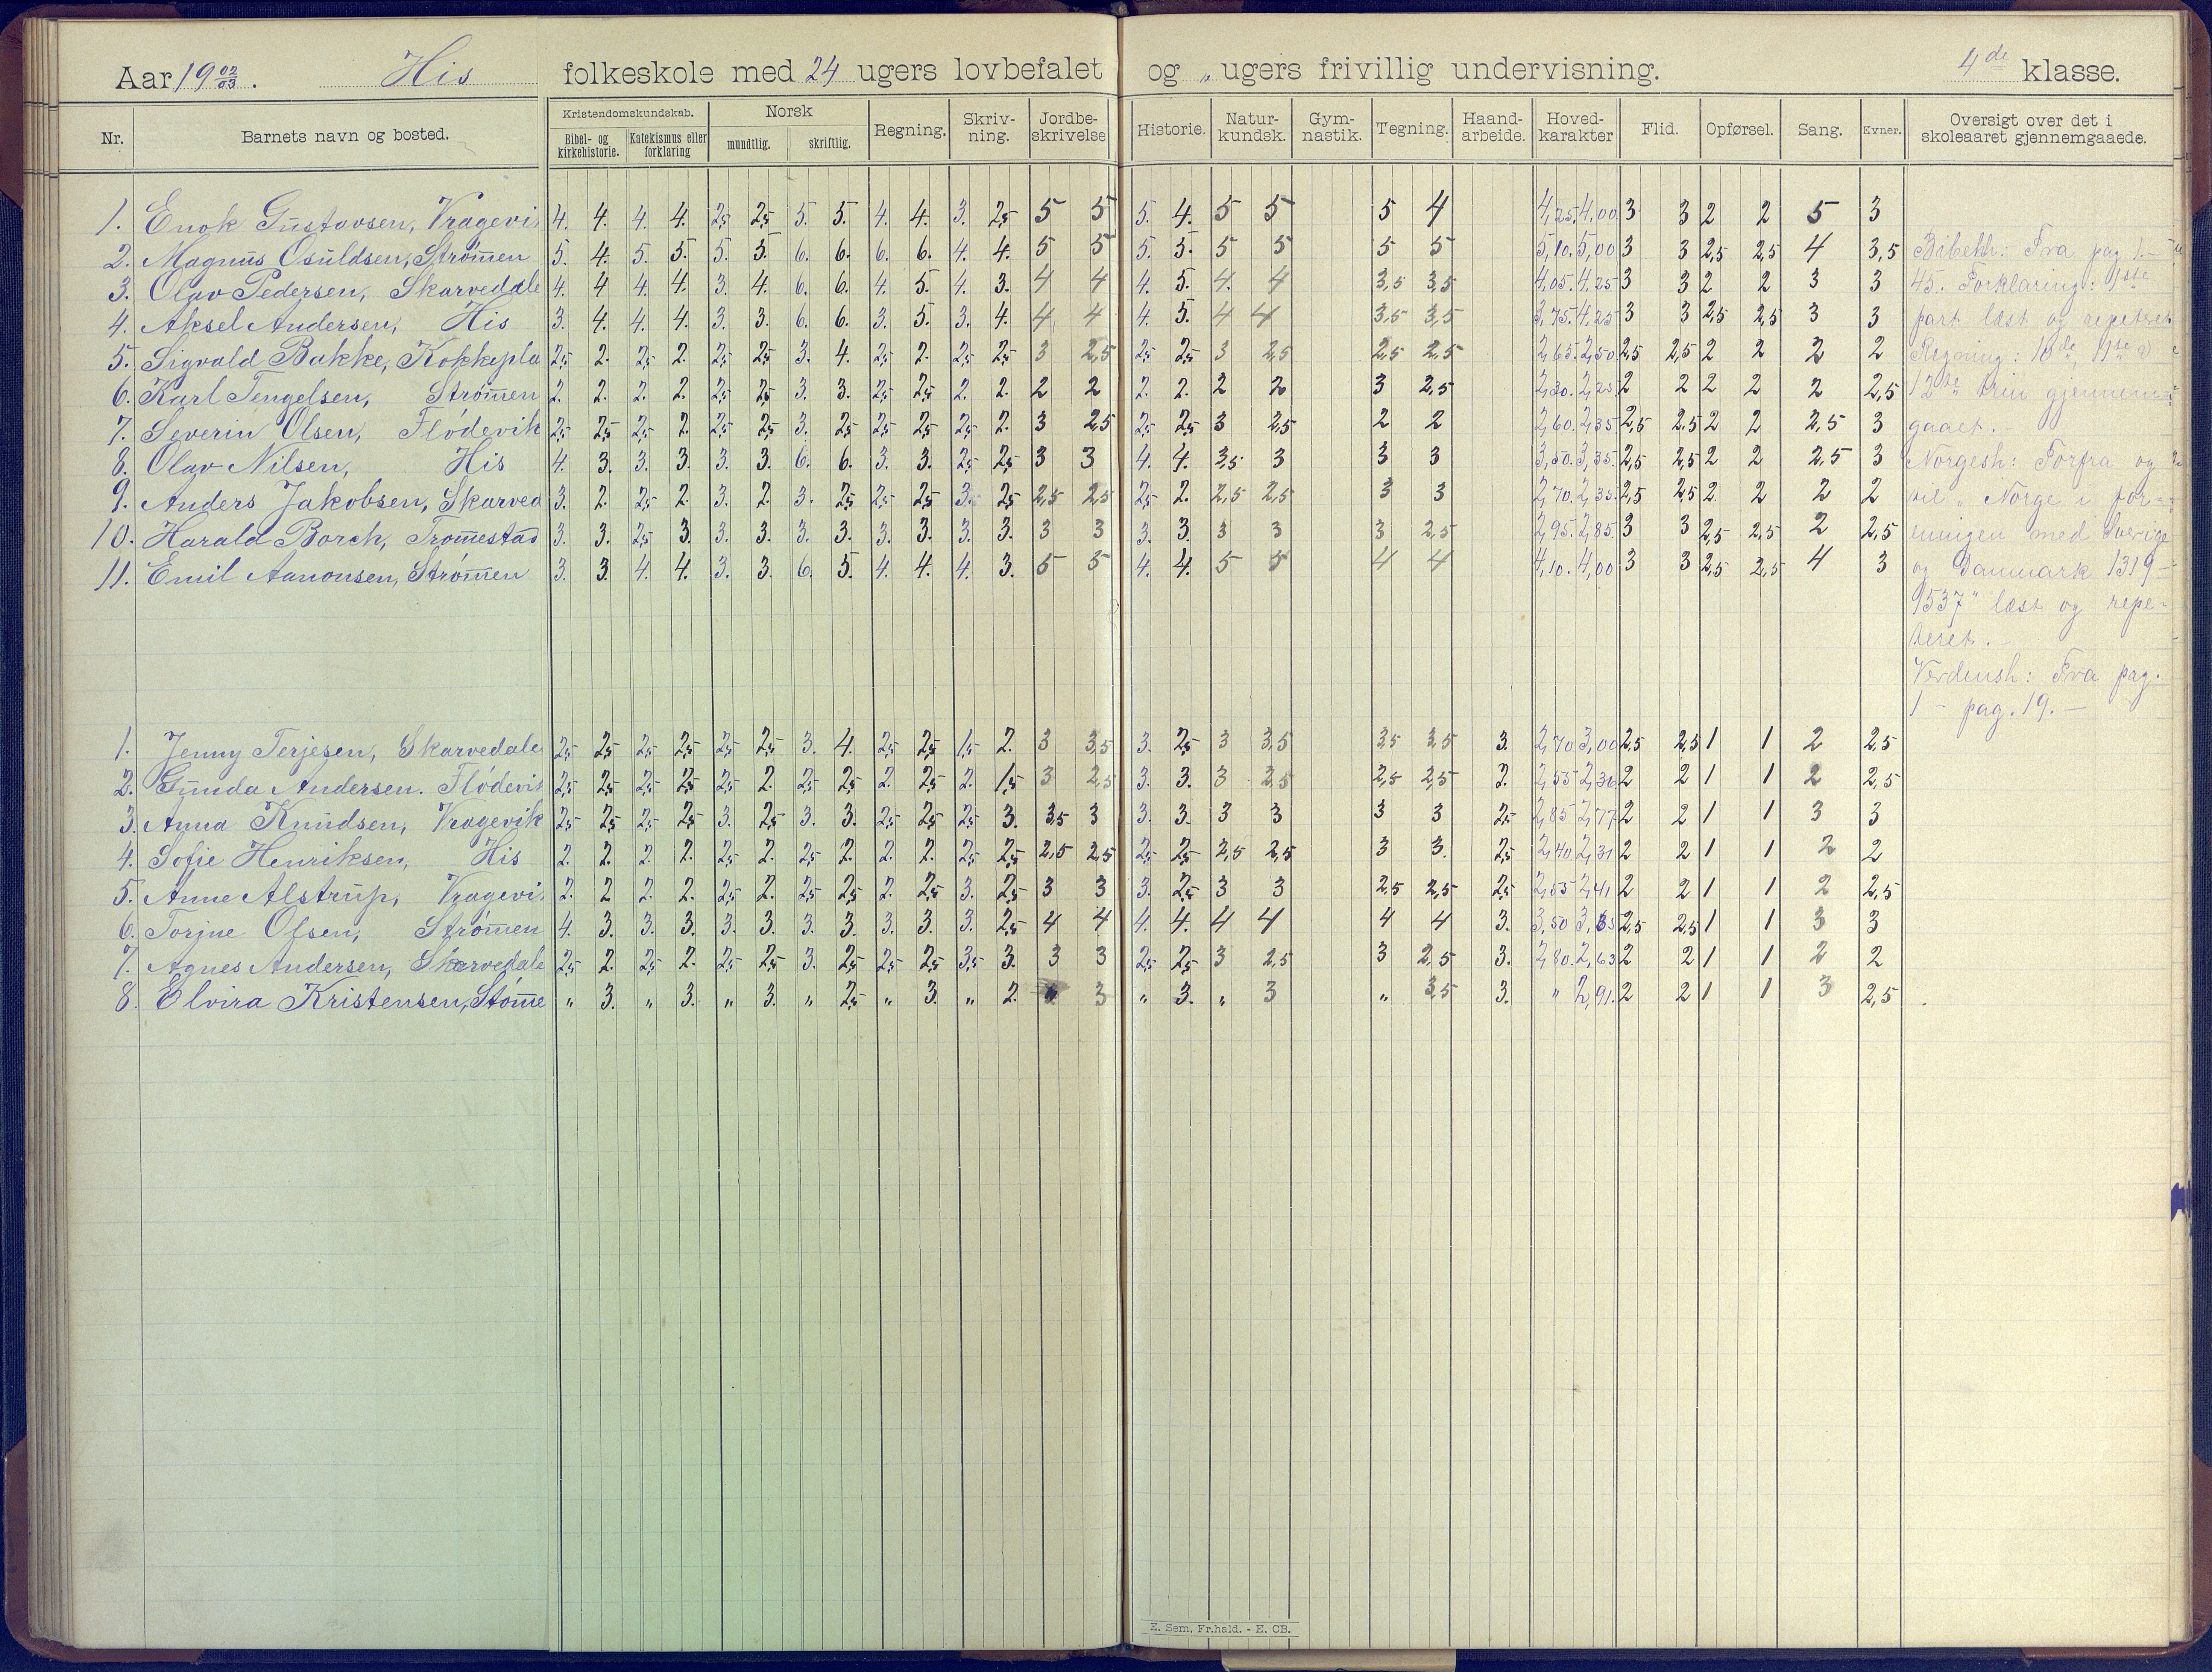 Aar 19 02/03. His folkeskole med 24 ugers lovbefalet og „ ugers frivillig undervisning. 4de klasse.
Nr. Barnets navn og bosted. Kristendomskundskab. Bibel- og kirkehistorie. Katekismus eller forklaring Norsk mundtlig. skriftlig. Regning. Skriv-ning. Jordbe-skrivelse Historie. Natur-kundsk. Gym-nastik. Tegning. Haand-arbeide. Hoved-karakter Flid. Opførsel. Sang. Evner. Oversigt over det i skoleaaret gjennemgaaede.
1. Enok Gustavsen, Vragevi 4. 4. 4. 4. 2,5 2,5 5. 5. 4. 4. 3. 2,5 5 5 5. 4. 5 5 5 4 4,25. 4,00. 3 3 2 2 5 3
2. Magnus Osuldsen, Strømen 5. 4. 5. 5. 5. 5. 6. 6. 6. 6. 4. 4. 5 5 5. 5. 5 5 5 5 5,10. 5,00 3 3 2,5 2,5 4 3,5 Bibelh: Fra pag 1.-
3. Olav Pedersen, Skarvedale 4. 4 4. 4. 3. 4. 6. 6. 4. 5. 4. 3. 4 4 4. 5. 4. 4 3,5 3,5 4,05. 4,25 3 3 2 2 3 3 45. Forklaring: 1ste
4. Aksel Andersen, His 3. 4. 4. 4. 3. 3. 6. 6. 3. 5. 3. 4. 4 4 4. 5. 4 4 3,5 3,5 3,75. 4,25 3 3 2,5 2,5 3 3 part læst og repetret
5. Sigvald Bakke, Kokkepla 2,5 2. 2,5 2. 2,5 2,5 3. 4. 2,5 2. 2,5 2,5 3 2,5 2,5 2,5 3 2,5 2,5 2,5 2,65. 2,50 2,5 2,5 2 2 2 2 Regning: 10de, 11te
6. Karl Tengelsen, Strømen 2. 2. 2. 2. 2,5 2,5 3. 3. 2,5 2,5 2. 2. 2 2 2. 2. 2 2 3 2,5 2,30. 2,25 2 2 2 2 2 2,5 12te trin gjennem=
7. Severin Olsen, Flødevik 2,5 2,5 2,5 2. 2,5 2,5 3. 2,5 2,5 2,5 2,5 2. 3 2,5 2,5 2,5 3 2,5 2 2 2,60. 2,35. 2,5 2,5 2 2 2,5 3 gaaet.
8. Olav Nilsen, His 4. 3. 3. 3. 3. 3. 6. 6. 3. 3. 2,5 2,5 3 3 4. 4. 3,5 3 3 3 3,50. 3,35. 2,5 2,5 2 2 2,5 3 Norgesh: Forfra og
9. Anders Jakobsen, Skarved 3. 2. 2,5 2. 3. 2. 3. 2,5 2,5 2,5 3. 2,5 2,5 2,5 2,5 2. 2,5 2,5 3 3 2,70. 2,35. 2,5 2,5 2. 2 2 2 til „Norge i for=
10. Harald Borch, Tromestad 3. 3. 2,5 3. 3. 3. 3. 3. 3. 3. 3. 3. 3 3 3. 3. 3 3 3 2,5 2,95. 2,85. 3 3 2,5 2,5 2 2,5 eningen med Sverige
11. Emil Aanonsen, Strømen 3. 3. 4. 4. 3. 3. 6. 5. 4. 4. 4. 3. 5 5 4. 4. 5 5 4 4 4,10. 4,00 3 3 2,5 2,5 4 3 og Danmark 1319-
1537" læst og repe-
teret.
Verdensh: Fra pag.
1 - pag. 19.
1. Jenny Terjesen, Skarvedale 2,5 2,5 2,5 2,5 2,5 2,5 3. 4. 2,5 2,5 1,5 2. 3 3,5 3. 2,5 3 3,5 3,5 3,5 3. 2,70 3,00 2,5 2,5 1 1 2 2,5
2. Gunda Andersen. Flødevi 2,5 2,5 2,5 2,5 2,5 2. 2,5 2,5 2. 2,5 2. 1,5 3 2,5 3. 3. 3 2,5 2,5 2,5 2. 2,55 2,36 2 2 1 1 2 2,5
3. Anna Knudsen, Vragevik 2,5 2,5 2,5 2,5 3. 2,5 3. 3. 2,5 2,5 2,5 3. 3,5 3 3. 3. 3 3 3 3 2,5 2,85 2,77 2 2 1 1 3 3
4. Sofie Henriksen, His 2. 2. 2. 2. 2,5 2. 2,5 2. 2. 2. 2,5 2,5 2,5 2,5 2,5 2,5 2,5 2,5 3 3. 2,5 2,40 2,31 2 2 1 1 2 2
5. Anne Alstrup, Vragevi 2. 2 2. 2. 2,5 2. 2,5 2,5 2. 2,5 3. 2,5 3 3 3. 2,5 3 3 2,5 2,5 2,5 2,55 2,41 2 2 1 1 2 2,5
6. Torjne Olsen, Strømen 4. 3. 3. 3. 3. 3. 3. 3. 3. 3. 3. 2,5 4 4 4. 4. 4 4 4 4 3. 3,50 3,35 2,5 2,5 1 1 3 3
7. Agnes Andersen, Skarvedale 2,5 2. 2,5 2. 2,5 2,5 3. 2,5 2,5 2,5 3,5 3. 3 3 2,5 2,5 3 2,5 3 2,5 3. 2,80. 2,63 2 2 1 1 2 2
8. Elvira Kristensen, Stømme „ 3. „ 3. „ 3. „ 2,5 „ 3. „ 2. 3 „ 3. „ 3 „ 3,5 3. „ 2,91. 2 2 1 1 3 2,5
E. Sem, Fr.hald. - E. CB.